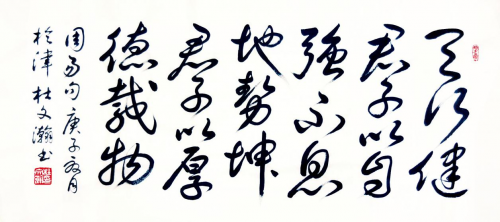 天行健
君子以自
强不息
地势坤
君子以厚
德载物
周易句 庚子
於津 杜文瀚书